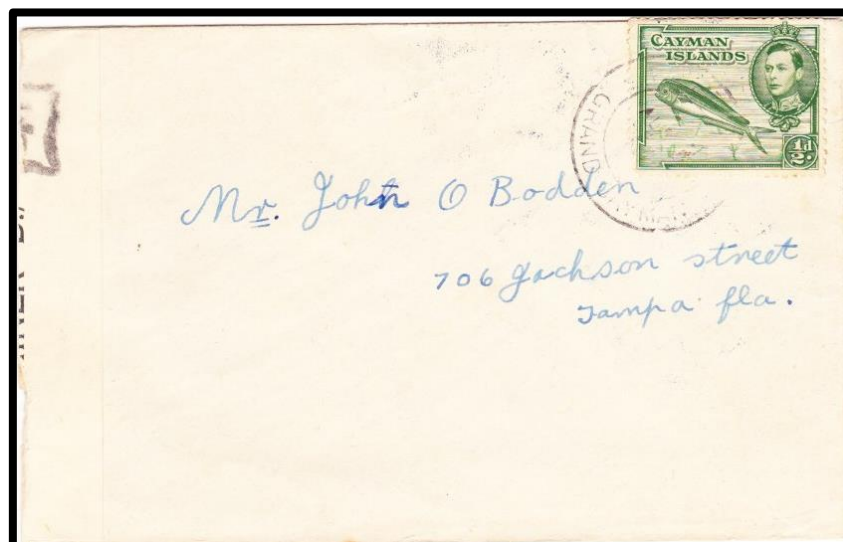 CAYMAN
ISLANDS
½d.
GRAND
Mr. John O Bodden
706 Jackson street
Tampa fla.